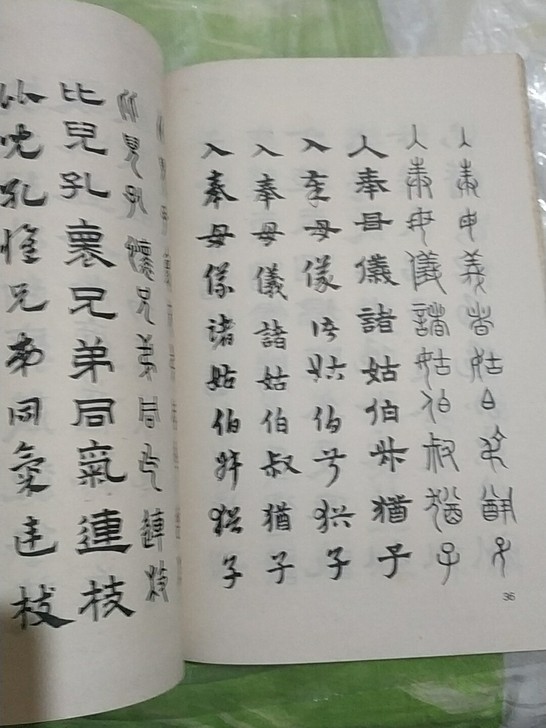 入奉母義者姑白叔猶子
入奉母儀諸姑伯叔猶子
入奉母儀諸姑伯叔猶子
入奉母儀諸姑伯叔猶子
入奉母儀諸姑伯叔猶子
入奉母儀諸姑伯叔猶子
36
比兒孔懷兄弟同气連枝
比兒孔褱兄弟同氣連枝
比兒孔懷兄弟同氣連枝